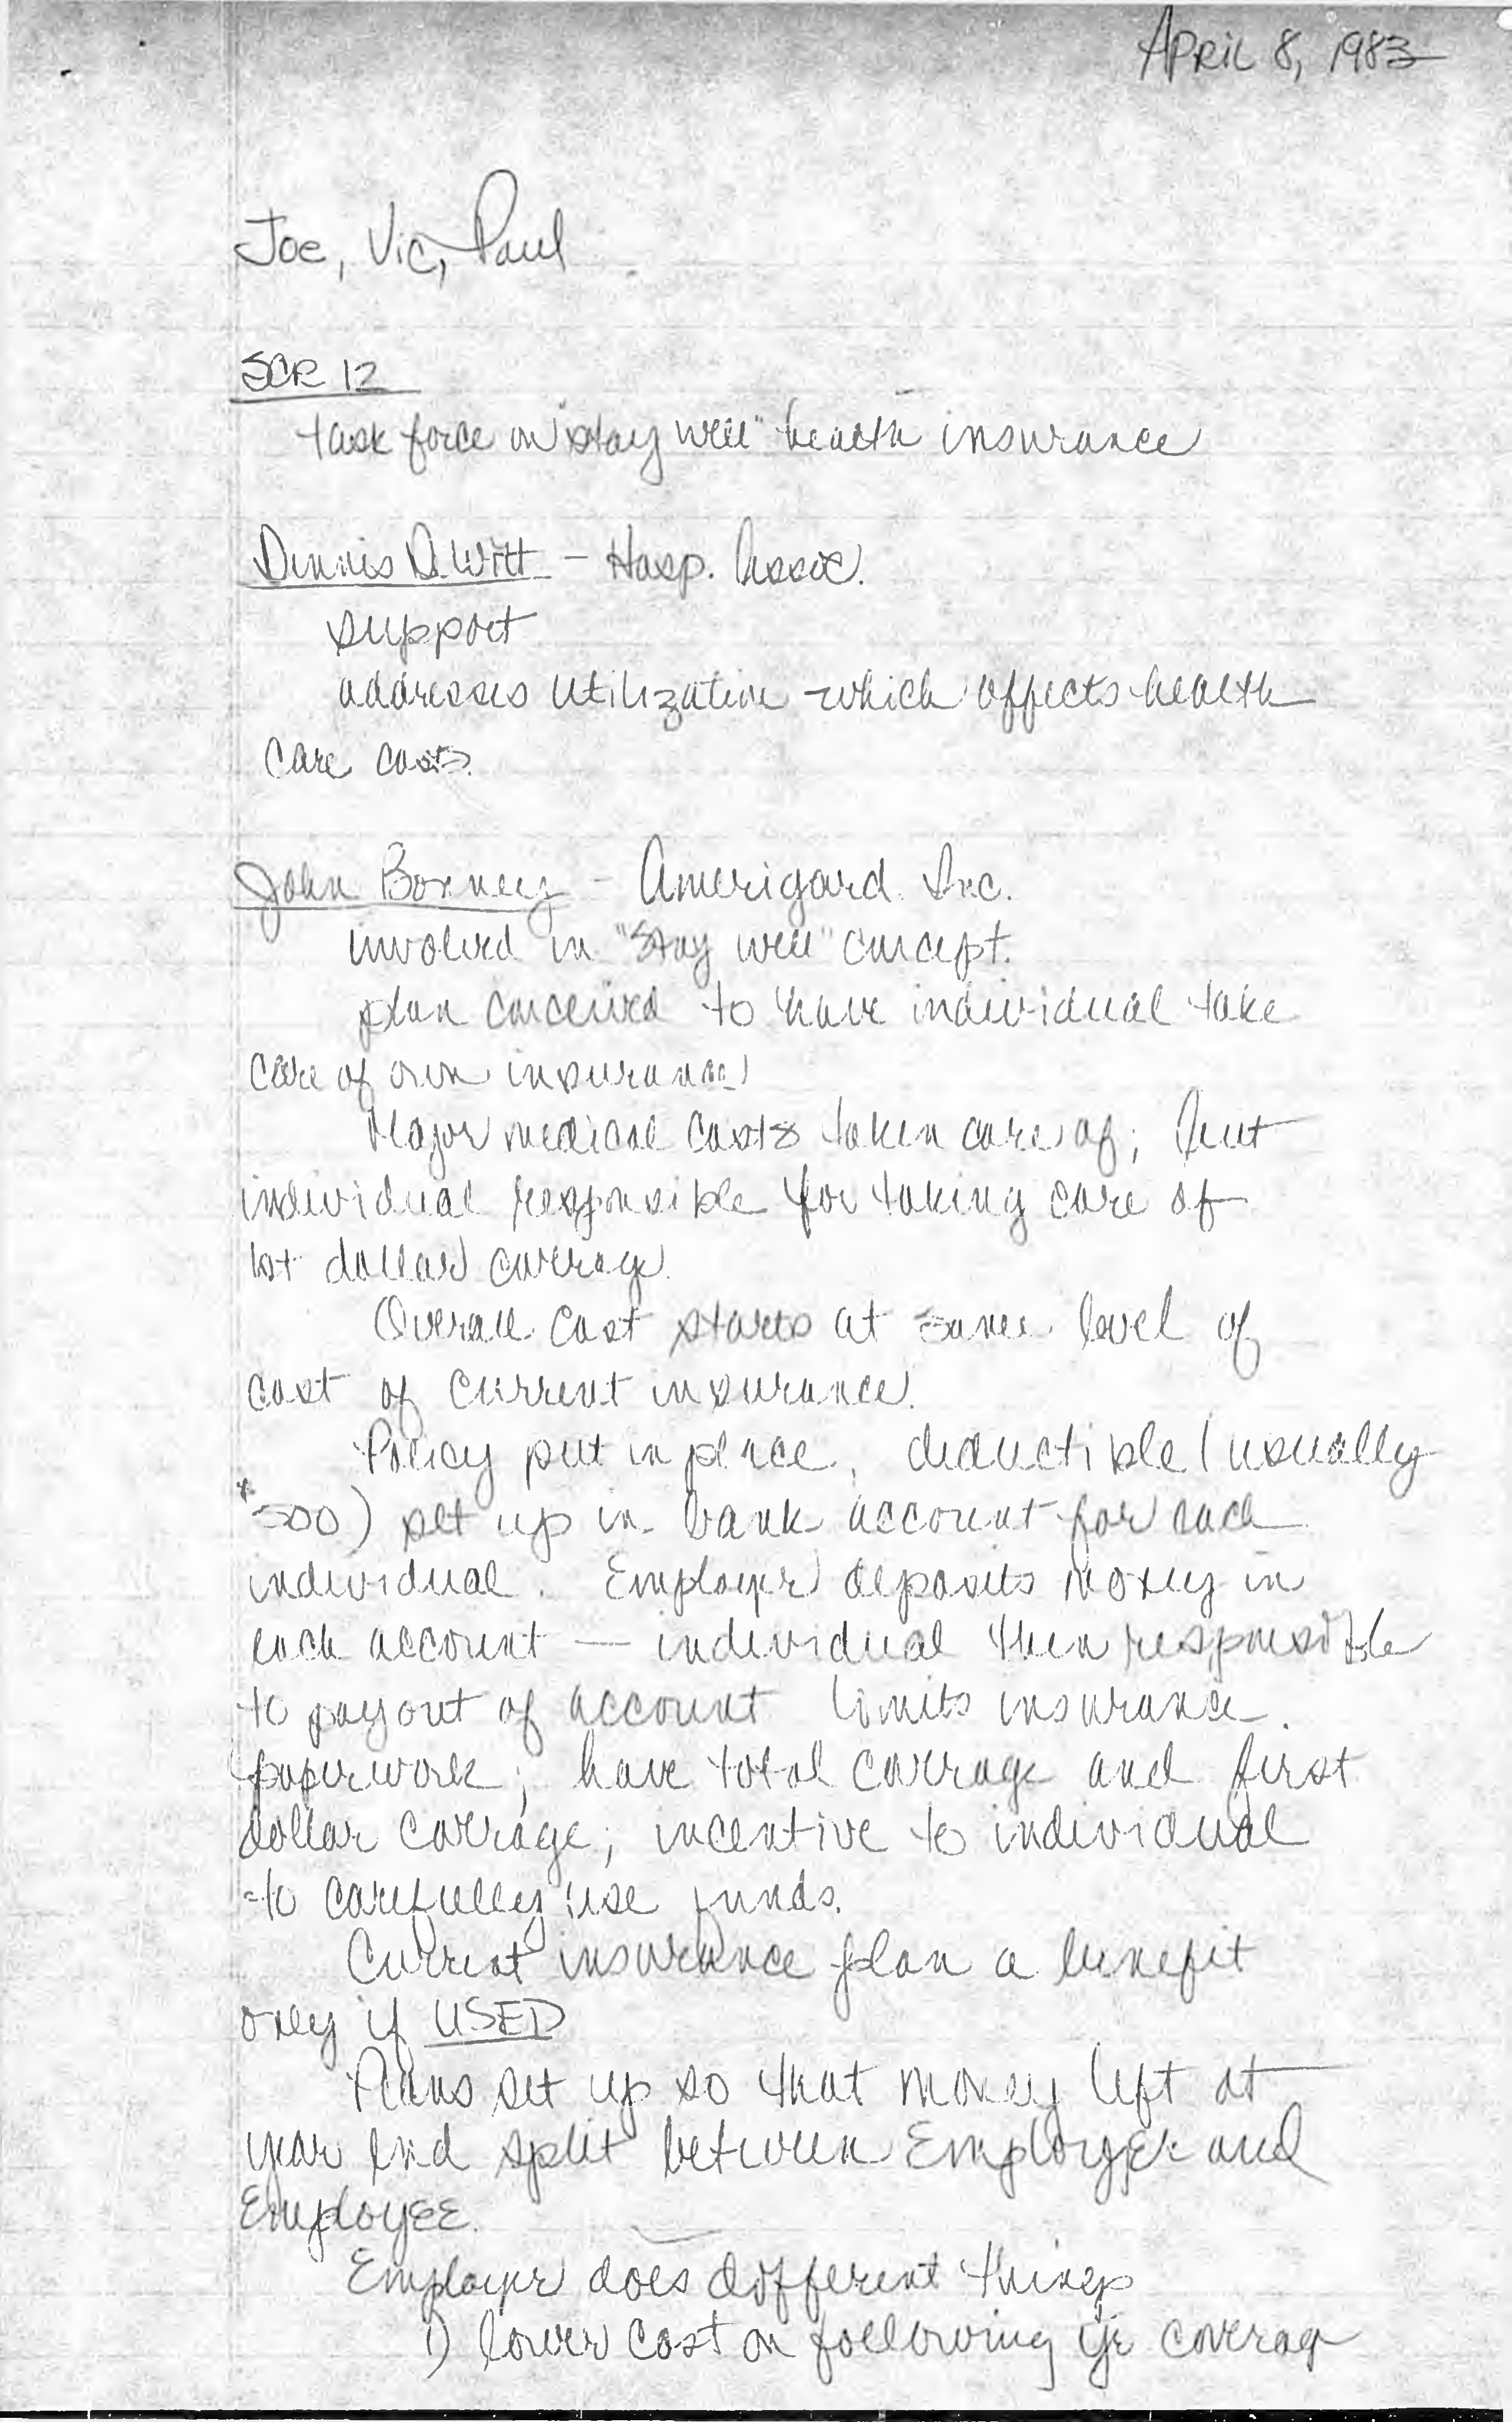 APRIL 8, 1983
Joe, Vic, Paul
SCR 12
task force on "stay well" health insurance
Dennis DeWitt - Hosp. Assoc.
support
addresses utilization which affects health
care costs.
John - Amerigard Inc.
involved in "stay well" concept.
plan conceived to have individual take
care of own insurance
Major medical costs taken care of; but
individual responsible for taking care of
1st dollar coverage.
Overall cost starts at same level of
cost of current insurance.
Policy put in place, deductible (usually
$500) set up in bank account for each
individual. Employer deposits money in
each account — individual then responsible
to pay out of account limits insurance
paperwork; have total coverage and first
dollar coverage; incentive to individual
to carefully use funds.
Current insurance plan a benefit
only if USED
Plans set up so that money left at
year end split between EmployeR and
EmployEE.
Employer does different things
1) lower cost on following yr coverag